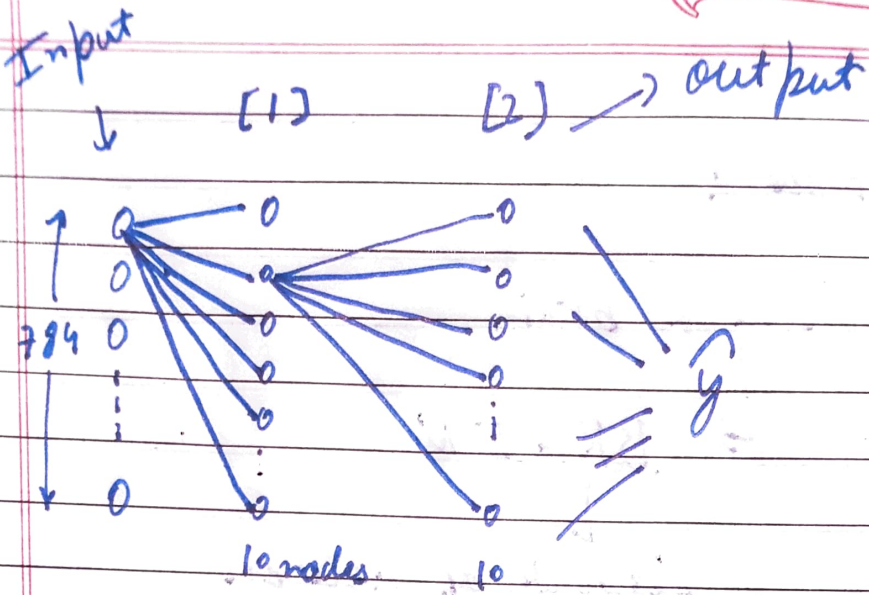 Input
[1] [2] → output
↓
784
ŷ
10 nodes 10